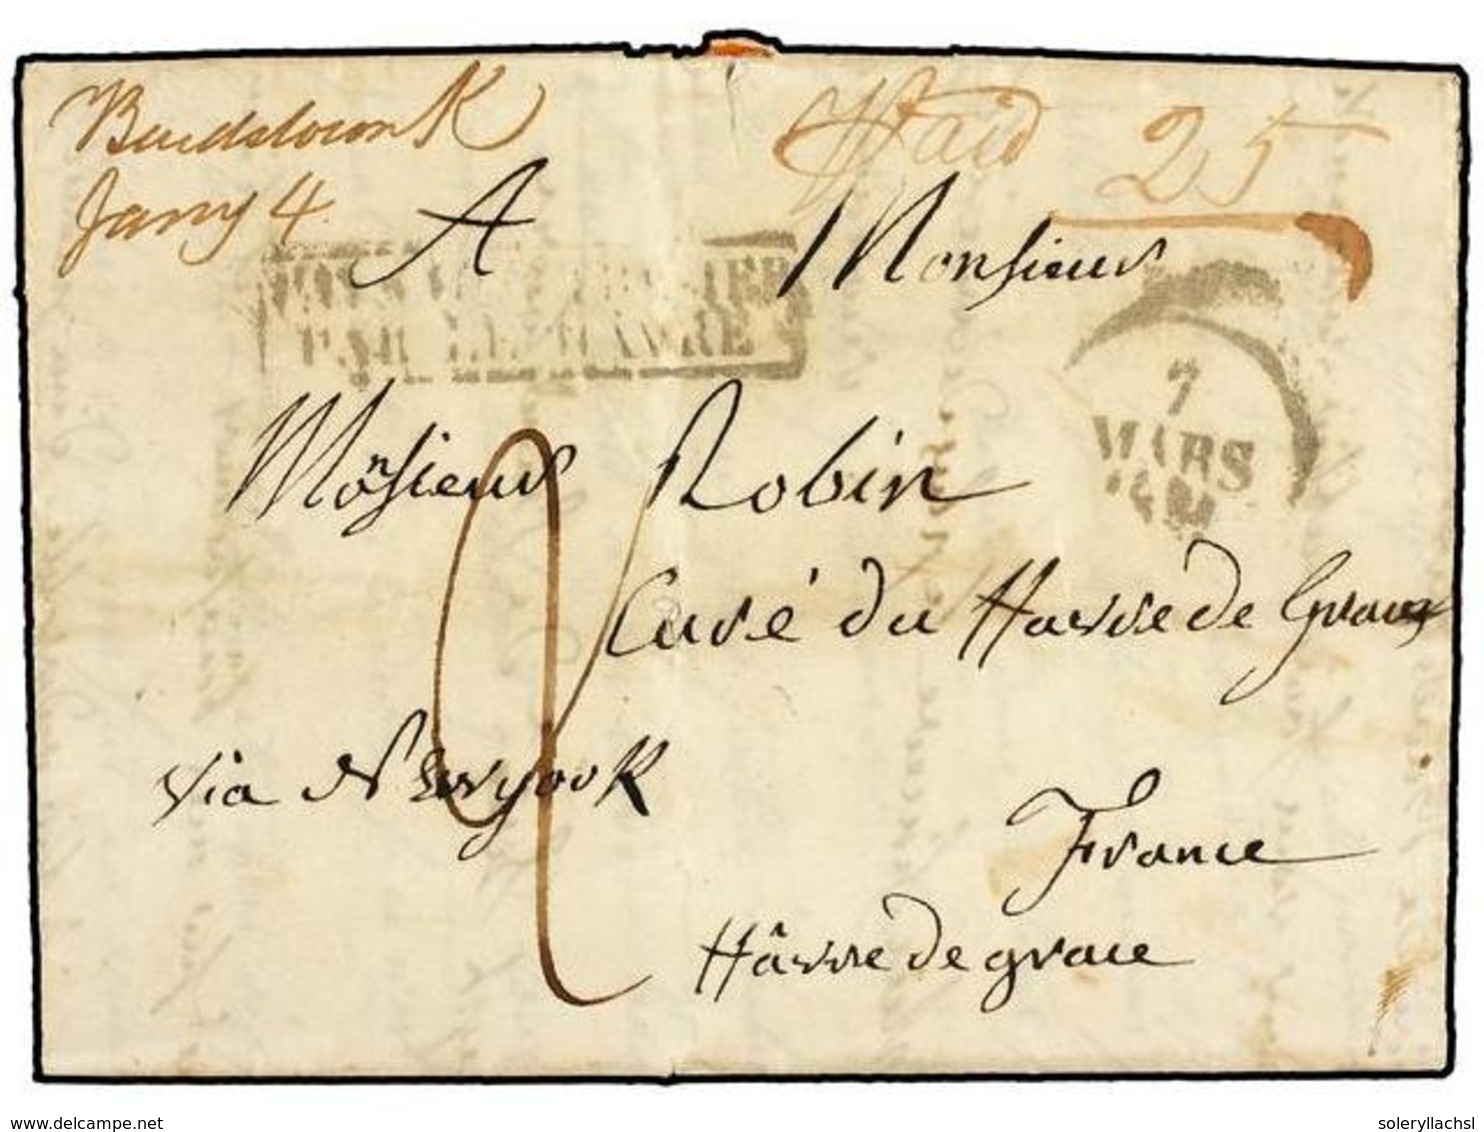 Bardstown K
Jany 4
Paid 25
A Monsieur
PAR LE HAVRE
7
MARS
Monsieur Robin
Curé du Havre de Grace
via Newyork
France
Hâvre de grace
www.delcampe.net
soleryllachsl